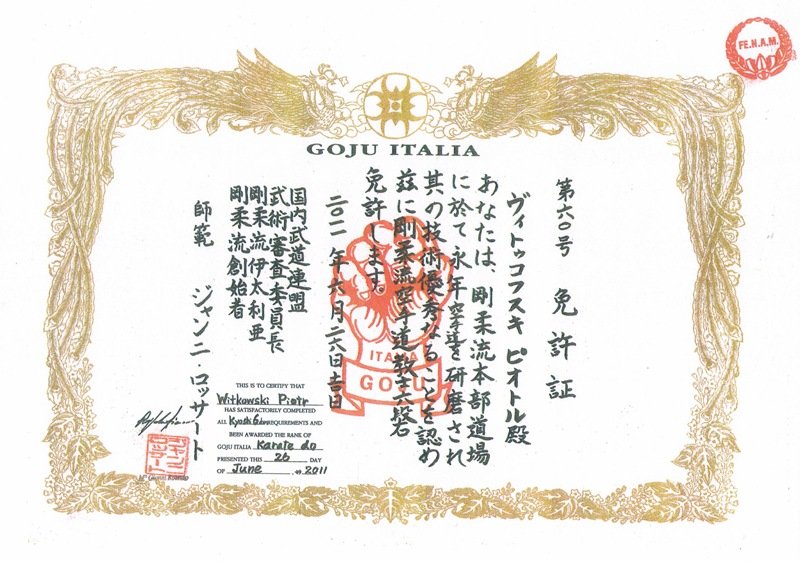 FE.N.A.M.
GOJU ITALIA
第六〇号 免許証
ヴィトゥコフスキ ピオトル殿
あなたは、剛柔流本部道場
に於て永年空手道を研磨され
其の技術優秀なることを認め
茲に剛柔流空手道教士六段
免許します。
二〇一一年六月二六日吉日
国内武道連盟
武術審査委員長
剛柔流伊太利亜
剛柔流創始者
師範 ジャンニ・ロッサート
ITALIA
GOJU
THIS IS TO CERTIFY THAT
Witkowski Piotr
HAS SATISFACTORILY COMPLETED
ALL Kyoshi 6 REQUIREMENTS AND
BEEN AWARDED THE RANK OF
GOJU ITALIA Karate do
PRESENTED THIS 26 DAY
OF June , 2011